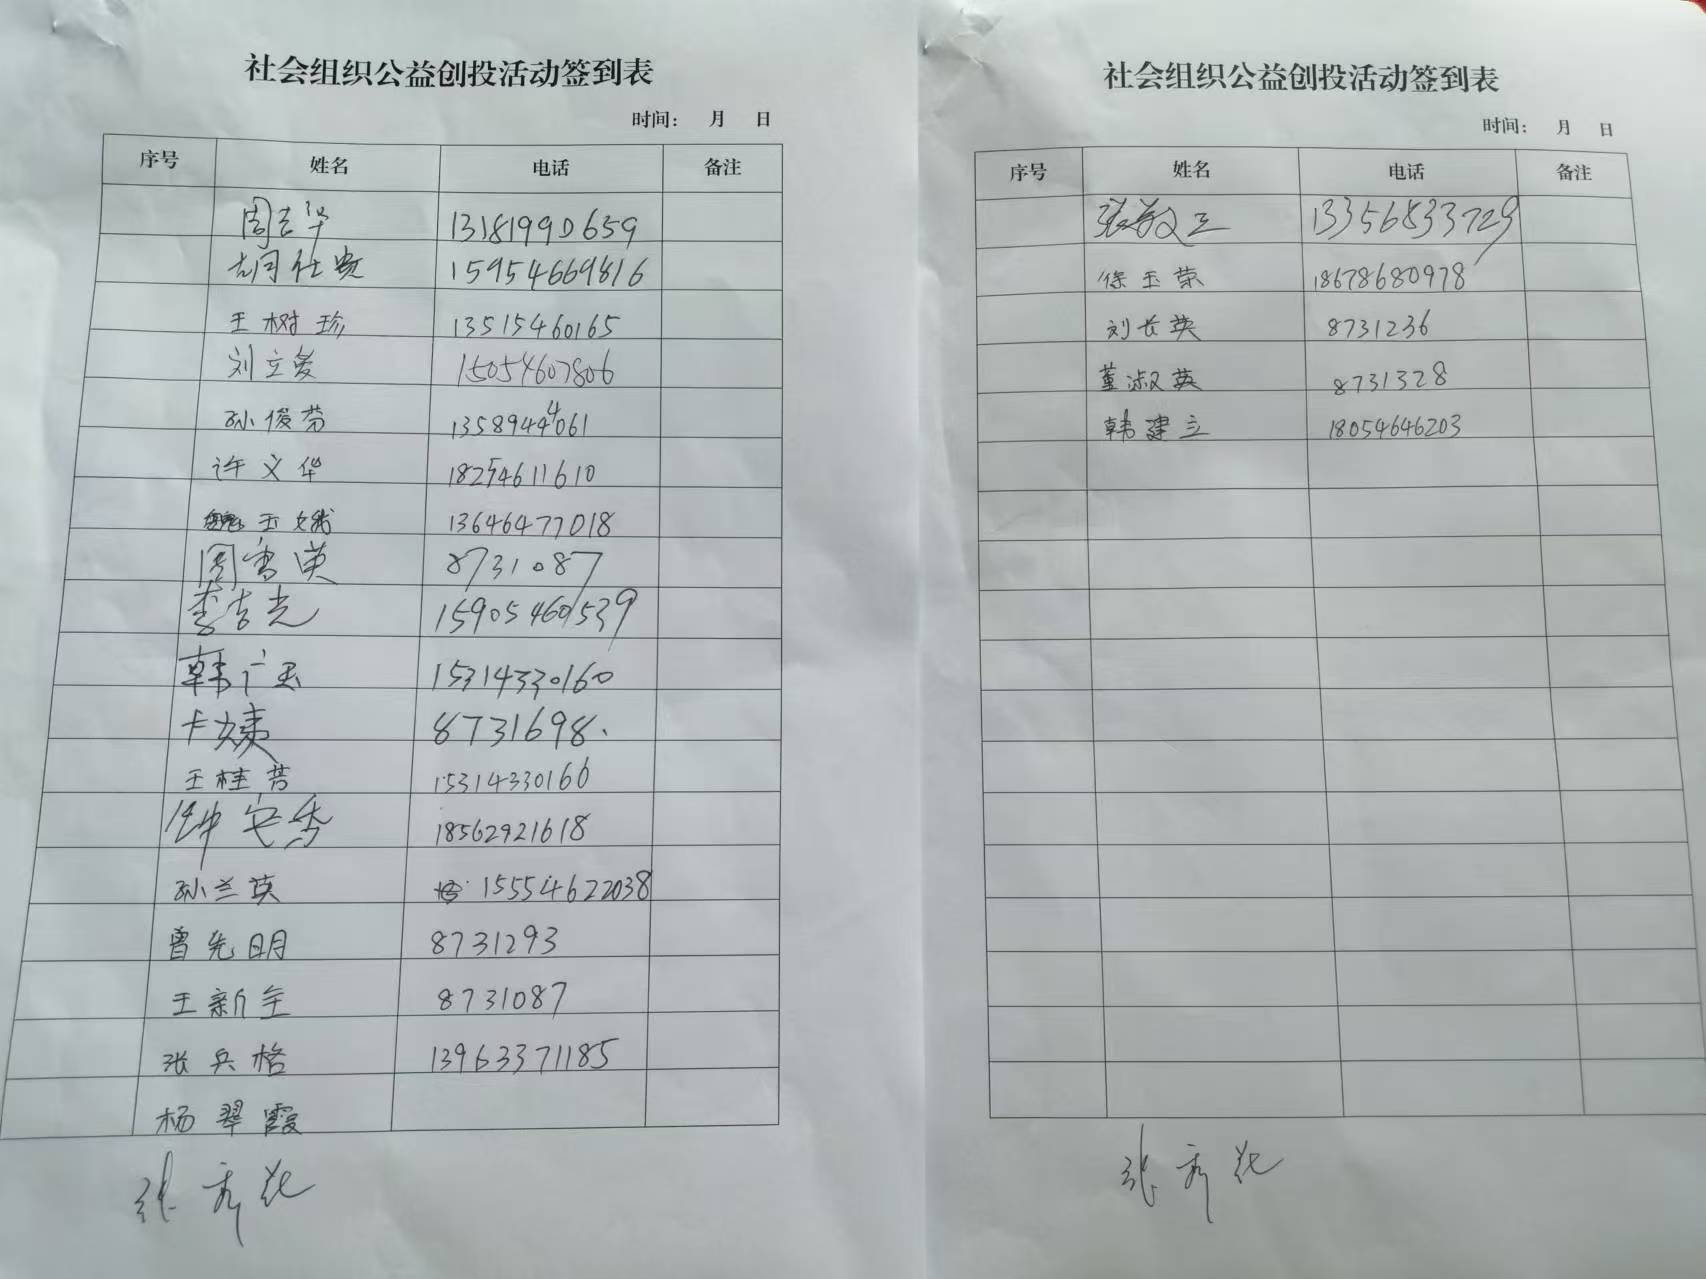 社会组织公益创投活动签到表
时间： 月 日
序号 姓名 电话 备注
周吉华 13181990659
胡仕贤 15954669816
王树珍 13515460165
刘立爱 15054607806
孙俊芬 13589444061
许文华 18254611610
魏玉娥 13646477018
周雪英 8731087
李吉光 15905460539
韩广玉 15314330160
8731698.
王桂芳 15314330160
钟安秀 18562921618
孙兰英 15554622038
曾先明 8731293
王新全 8731087
张兵格 13963371185
杨翠霞
张秀花
社会组织公益创投活动签到表
时间： 月 日
序号 姓名 电话 备注
张敬立 13356833729
徐玉荣 18678680978
刘长英 8731236
董淑英 8731328
韩建立 18054646203
张秀花